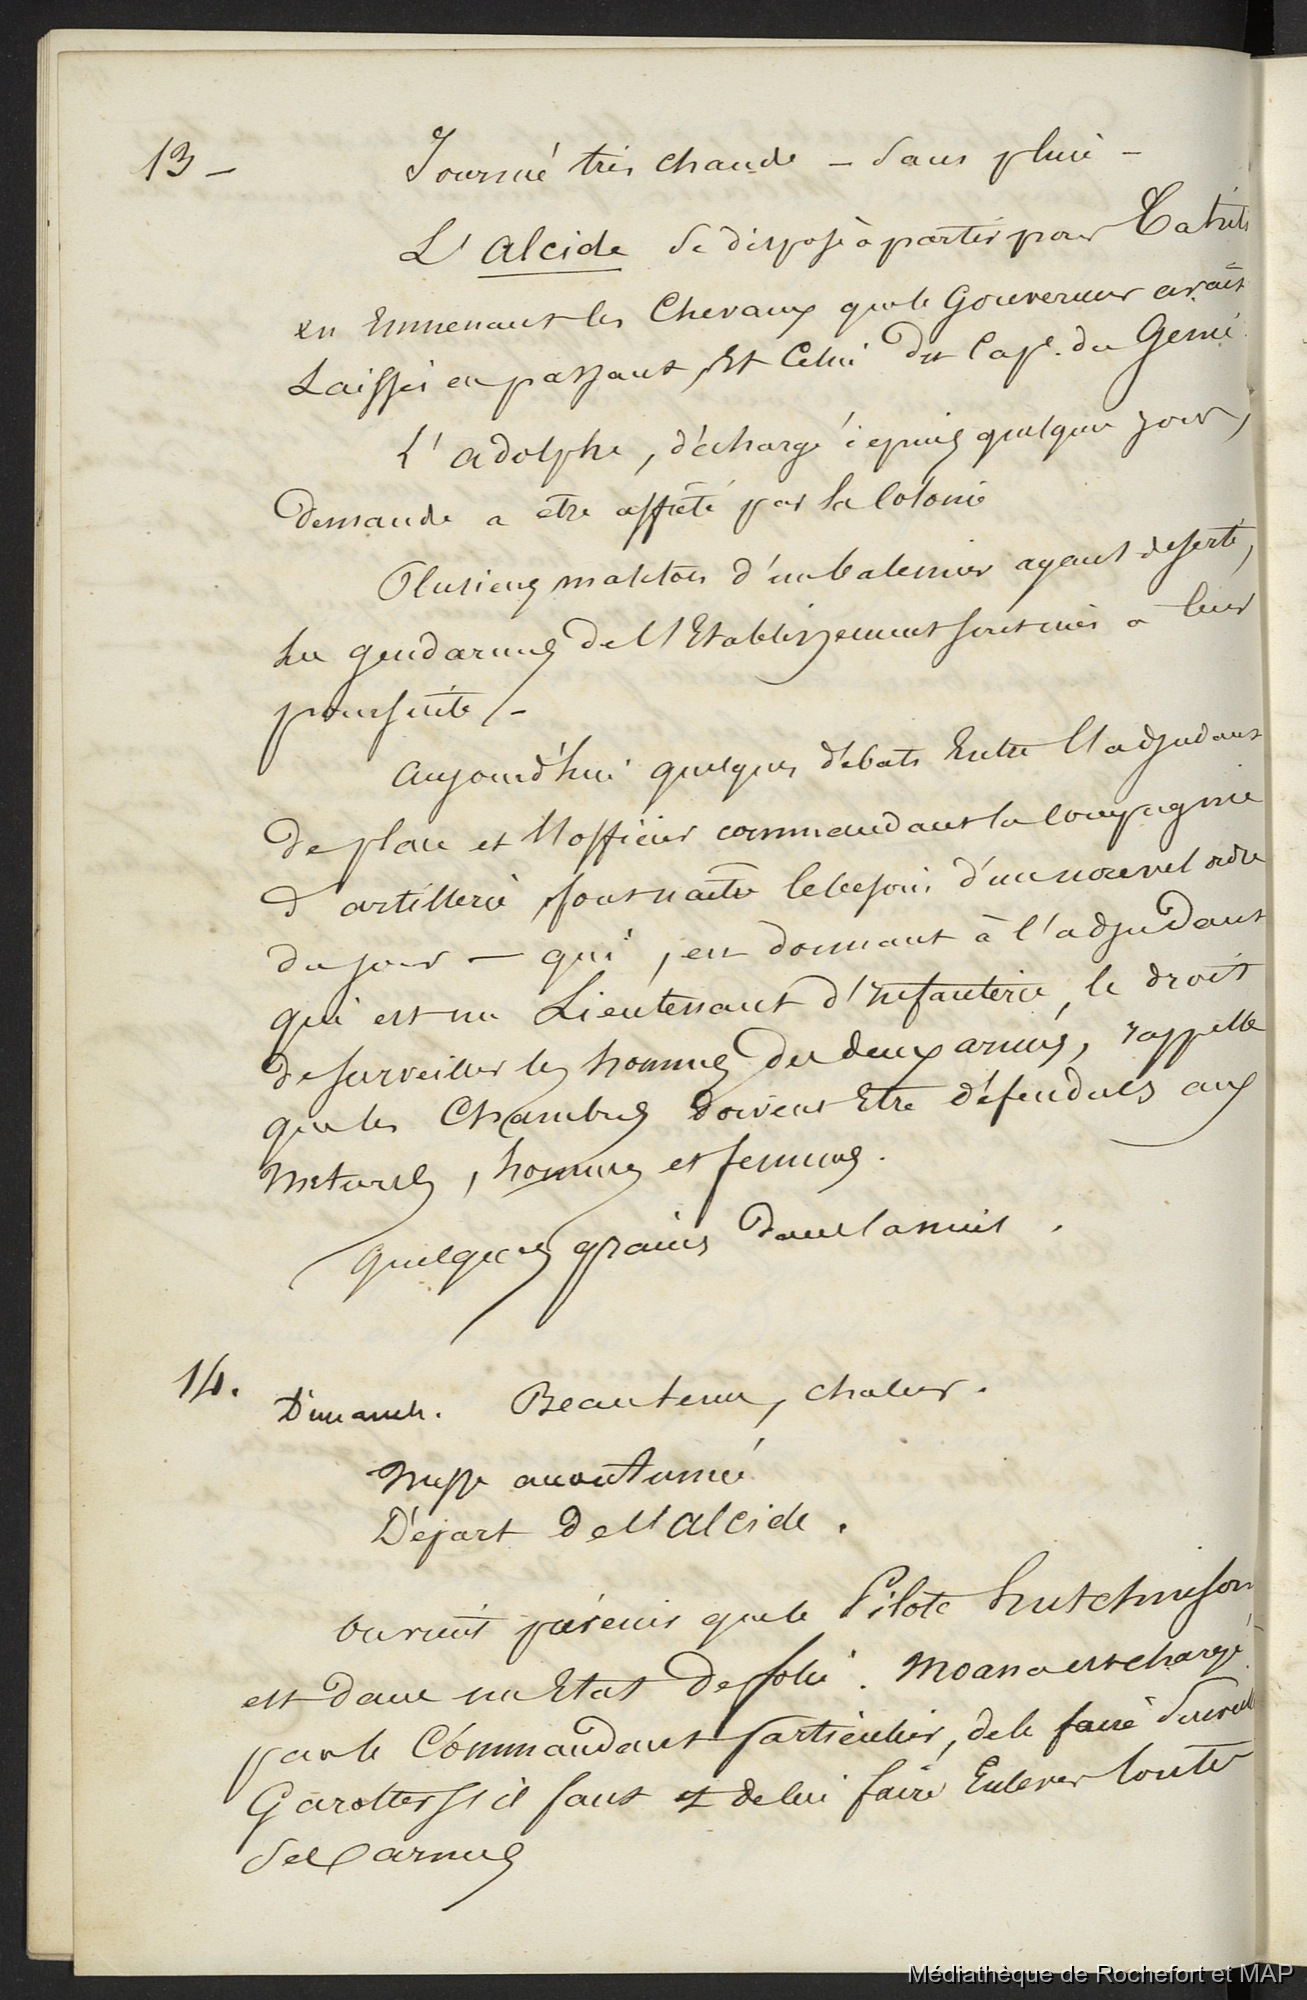 13 — Journée très chaude — Sans pluie —
L'Alcide se dispose à partir pour Tahiti
en Emmenant les Chevaux que le Gouverneur avait
Laissés en passant, Et Celui du Cape. du Genie.
L'adolphe, déchargé depuis quelque jour,
demande a être affrété par la Colonie
Plusieurs matelots d'un baleinier ayant déserté,
les gendarmes de l'Etablissement sont mis a leur
poursuite. —
Aujourd'hui quelques débats Entre l'adjudant
de place et l'officier commandant la compagnie
d'artillerie font naître le besoin d'un nouvel ordre
du jour — qui, en donnant à l'adjudant
qui est un Lieutenant d'Infanterie, le droit
de surveiller les hommes des deux armes, rappelle
que les Chambres doivent Etre défendues aux
Naturels, hommes et femmes.
Quelques grains dans la nuit.
14. Dimanche. Beau tems, chaleur.
Messe accoutumée
Départ de l'Alcide.
On vient prévenir que le Pilote Hutchinson
est dans un Etat de folie. Moana est chargé
par le Commandant particulier, de le faire Surveil
Garotter s'il faut et de lui faire Enlever toutes
Ses armes